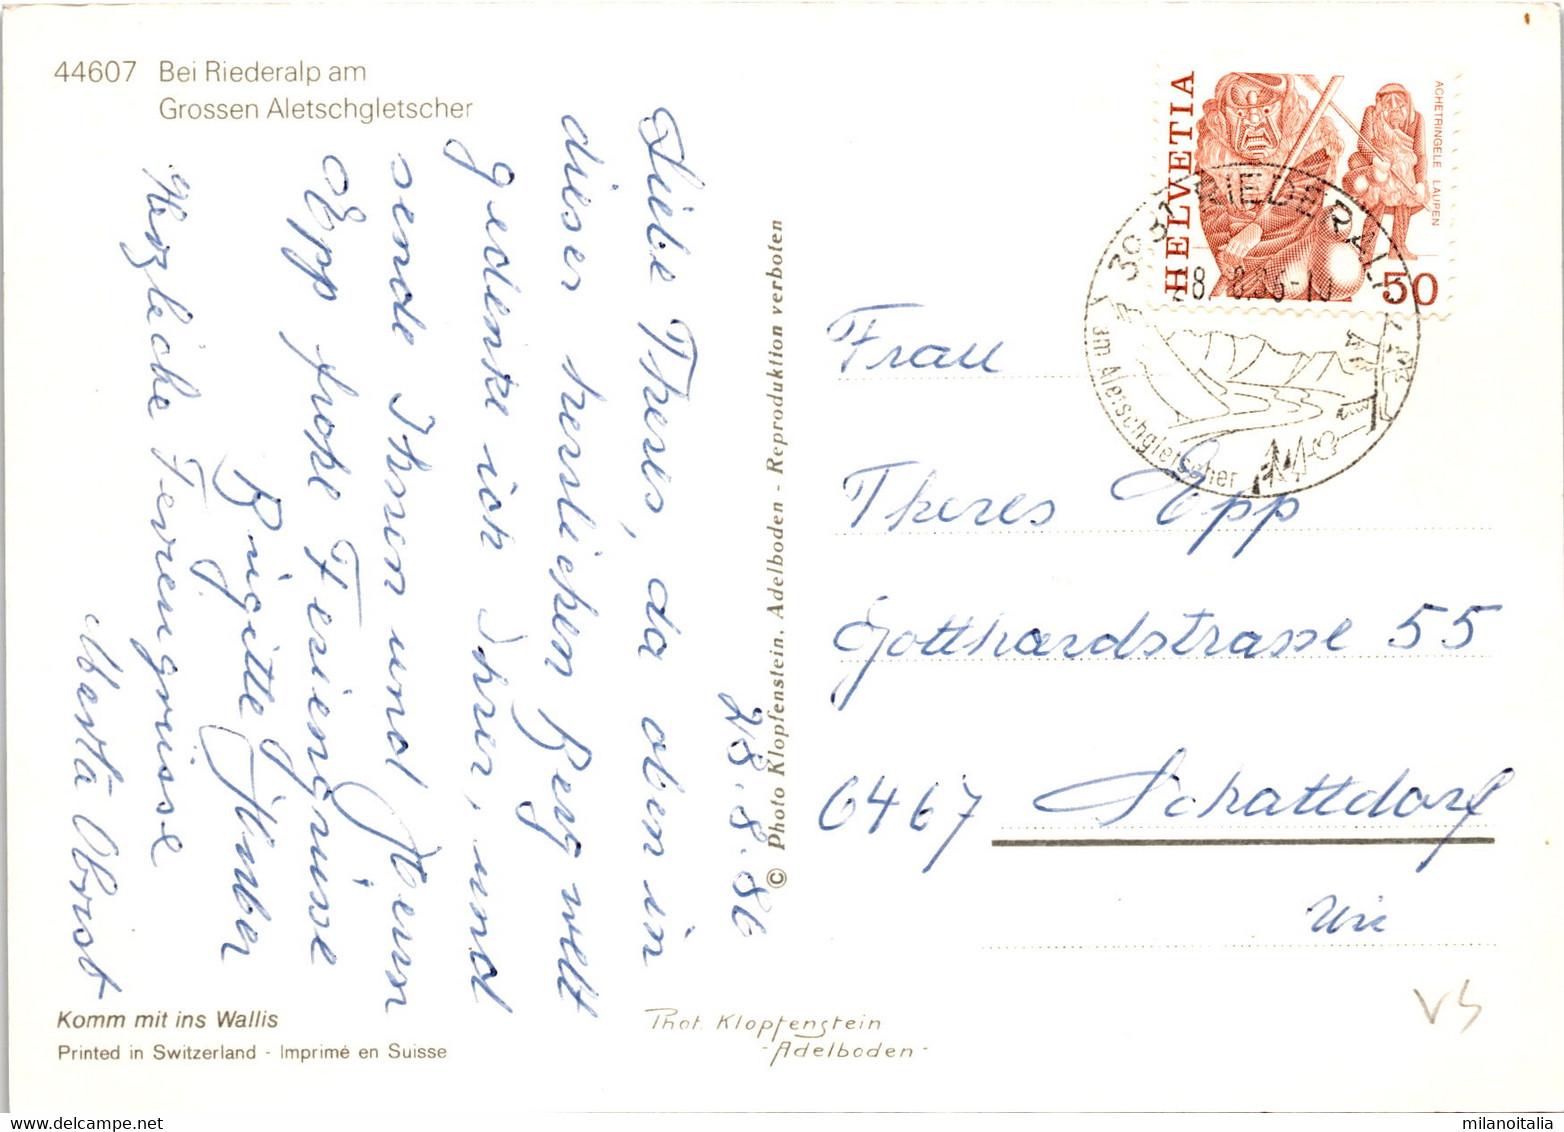 44607 Bei Riederalp am
Grossen Aletschgletscher
28.8.86
Liebe Theres, da oben in
dieser herrlichen Bergwelt
gedenke ich Ihrer, und
sende Ihnen und Herrn
Epp frohe Feriengrüsse
Brigitte Huber
Herzliche Feriengrüsse
Marta Obrist
Komm mit ins Wallis
Printed in Switzerland - Imprimé en Suisse
© Photo Klopfenstein, Adelboden - Reproduktion verboten
Phot. Klopfenstein
-Adelboden-
HELVETIA
ACHETRINGELE LAUPEN
50
RIEDERALP
am Aletschgletscher
Frau
Theres Epp
Gotthardstrasse 55
6467 Schattdorf
Uri
VS
milanoitalia